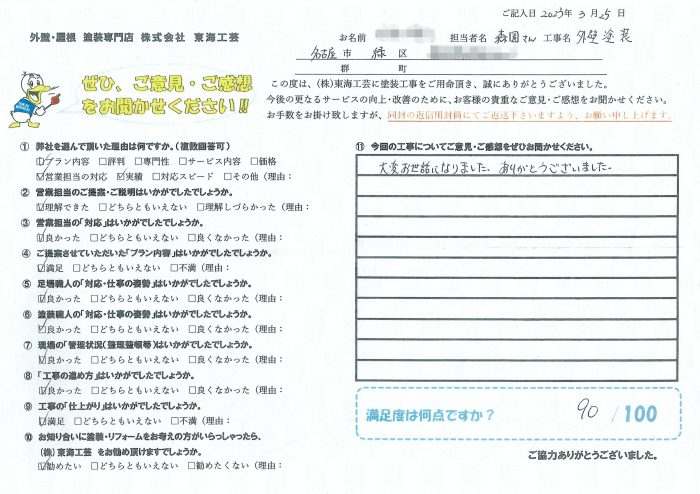 ご記入日 2023年 3月 25日
外壁・屋根 塗装専門店 株式会社 東海工芸
お名前 担当者名 森園さん 工事名 外壁塗装
名古屋市 緑区
郡 町
ぜひ、ご意見・ご感想
をお聞かせください!!
この度は、(株)東海工芸に塗装工事をご用命頂き、誠にありがとうございました。
今後の更なるサービスの向上・改善のために、お客様の貴重なご意見・ご感想をお聞かせください。
お手数をお掛け致しますが、同封の返信用封筒にてご返送下さいますよう、お願い申し上げます。
① 弊社を選んで頂いた理由は何ですか。(複数回答可)
☑プラン内容 □評判 □専門性 □サービス内容 □価格
☑営業担当の対応 ☑実績 □対応スピード □その他(理由:
② 営業担当のご提案・ご説明はいかがでしたでしょうか。
☑理解できた □どちらともいえない □理解しづらかった(理由:
③ 営業担当の「対応」はいかがでしたでしょうか。
☑良かった □どちらともいえない □良くなかった(理由:
④ ご提案させていただいた「プラン内容」はいかがでしたでしょうか。
☑満足 □どちらともいえない □不満(理由:
⑤ 足場職人の「対応・仕事の姿勢」はいかがでしたでしょうか。
☑良かった □どちらともいえない □良くなかった(理由:
⑥ 塗装職人の「対応・仕事の姿勢」はいかがでしたでしょうか。
☑良かった □どちらともいえない □良くなかった(理由:
⑦ 現場の「管理状況(整理整頓等)はいかがでしたでしょうか。
☑良かった □どちらともいえない □良くなかった(理由:
⑧ 「工事の進め方」はいかがでしたでしょうか。
☑良かった □どちらともいえない □良くなかった(理由:
⑨ 工事の「仕上がり」はいかがでしたでしょうか。
☑満足 □どちらともいえない □不満(理由:
⑩ お知り合いに塗装・リフォームをお考えの方がいらっしゃったら、
(株)東海工芸 をお勧め頂けますでしょうか。
☑勧めたい □どちらともいえない □勧めたくない(理由:
⑪ 今回の工事についてご意見・ご感想をぜひお聞かせください。
大変お世話になりました。ありがとうございました。
満足度は何点ですか? 90 /100
ご協力ありがとうございました。